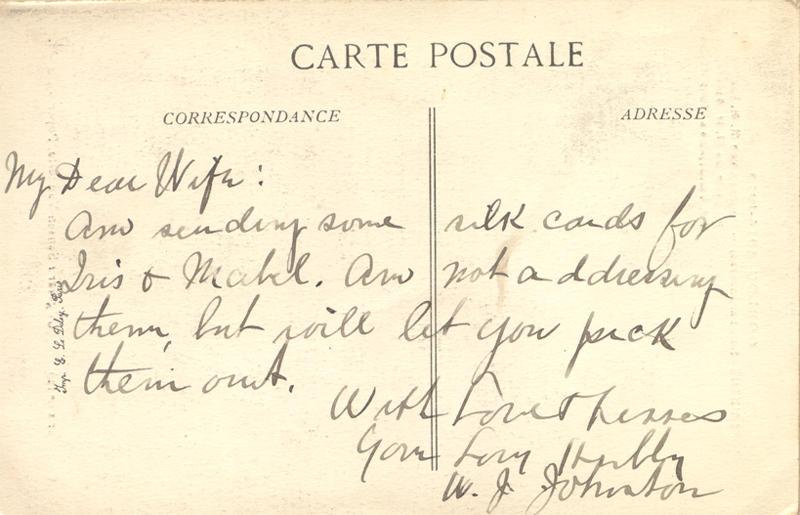 CARTE POSTALE
CORRESPONDANCE
ADRESSE
My Dear Wife:
Am sending some silk cards for
Iris & Mabel. Am not addressing
them, but will let you pick
them out.
With Love & kisses
Your Hubby
W. J. Johnston
Imp. E. Le Deley, Paris